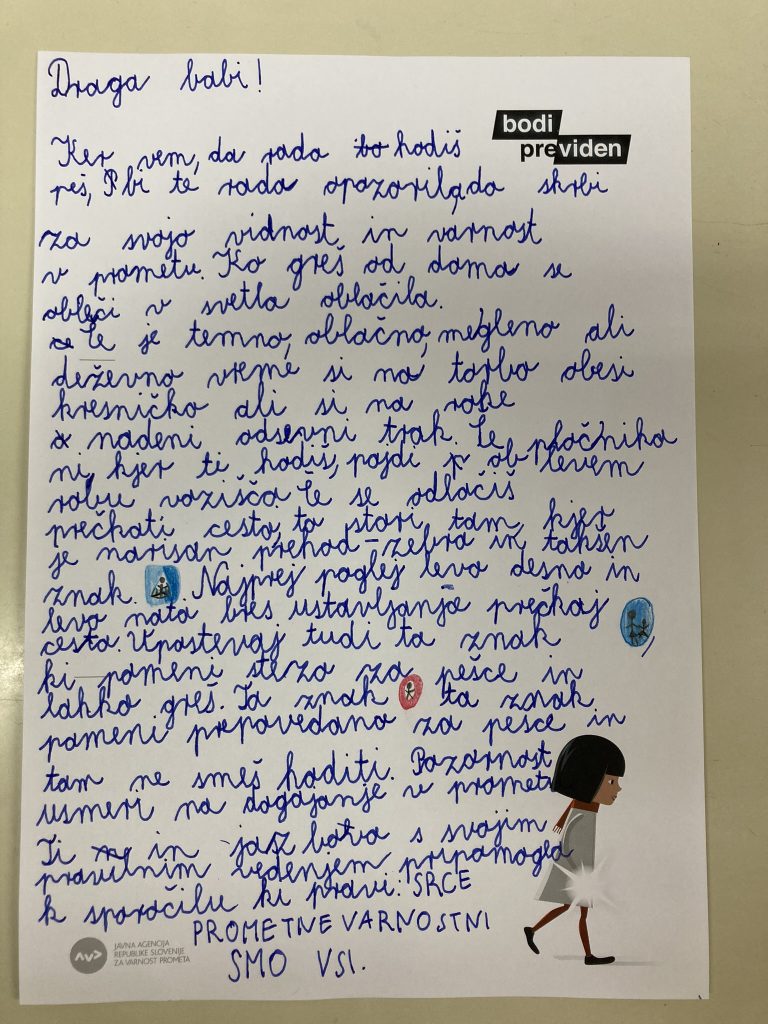 Draga babi!
bodi
previden
Ker vem, da rada hodiš
peš, bi te rada opozorila, da skrbi
za svojo vidnost in varnost
v prometu. Ko greš od doma se
obleči v svetla oblačila.
Če je temno, oblačno, megleno ali
deževno vreme si na torbo obesi
kresničko ali si na roke
nadeni odsevni trak. Če pločnika
ni, kjer ti hodiš, pojdi ob levem
robu vozišča. Če se odločiš
prečkati cesto, to stori tam, kjer
je narisan prehod-zebra in takšen
znak. Najprej poglej levo desno in
levo nato bres ustavljanja prečkaj
cesto. Upoštevaj tudi ta znak
ki pomeni steza za pešce in
lahko greš. Ta znak ta znak
pomeni prepovedano za pešce in
tam ne smeš hoditi. Pozornost
usmeri na dogajanje v prometu
Ti in jaz bova s svojim
pravilnim vedenjem pripomogla
k sporočilu ki pravi: SRCE
PROMETNE VARNOSTNI
SMO VSI.
JAVNA AGENCIJA
REPUBLIKE SLOVENIJE
ZA VARNOST PROMETA